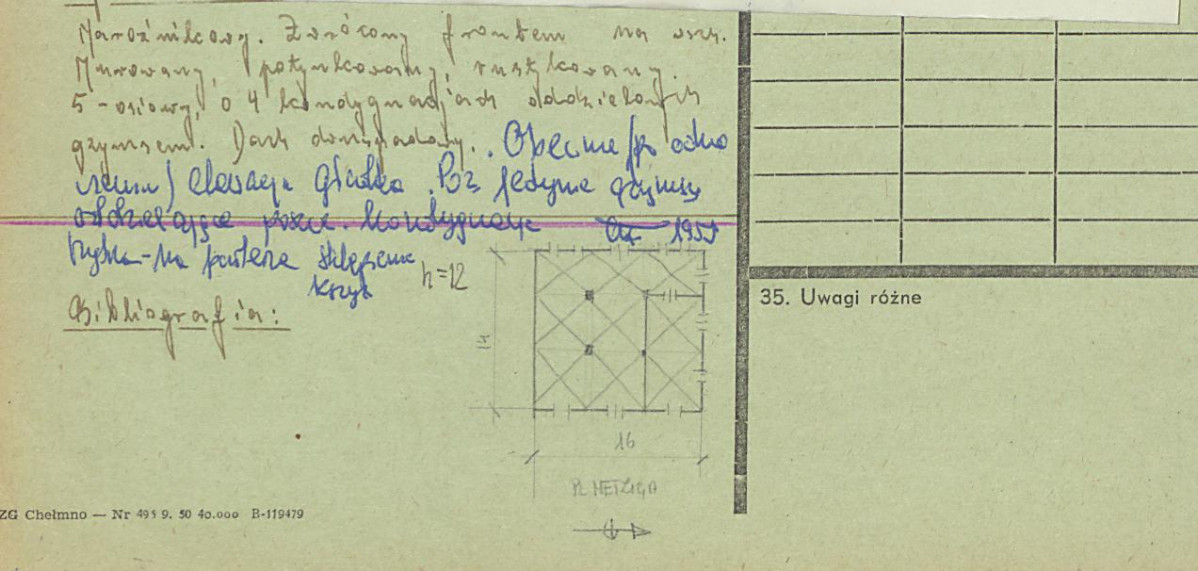 Narożnikowy. Zwrócony frontem na wsch.
Murowany, potynkowany, rustykowany.
5-osiowy, o 4 kondygnacjach oddzielonych
gzymsem. Dach dwuspadowy. Obecnie /po odno
wieniu/ elewacja gładka. Są jedynie gzymsy
oddzielające poszcz. kondygnacje 1955
na parterze sklepienie
krzyż
h=12
Bibliografia:
16
PL METZIGA
35. Uwagi różne
ZG Chełmno — Nr 495 9. 50 40.000 B-119479